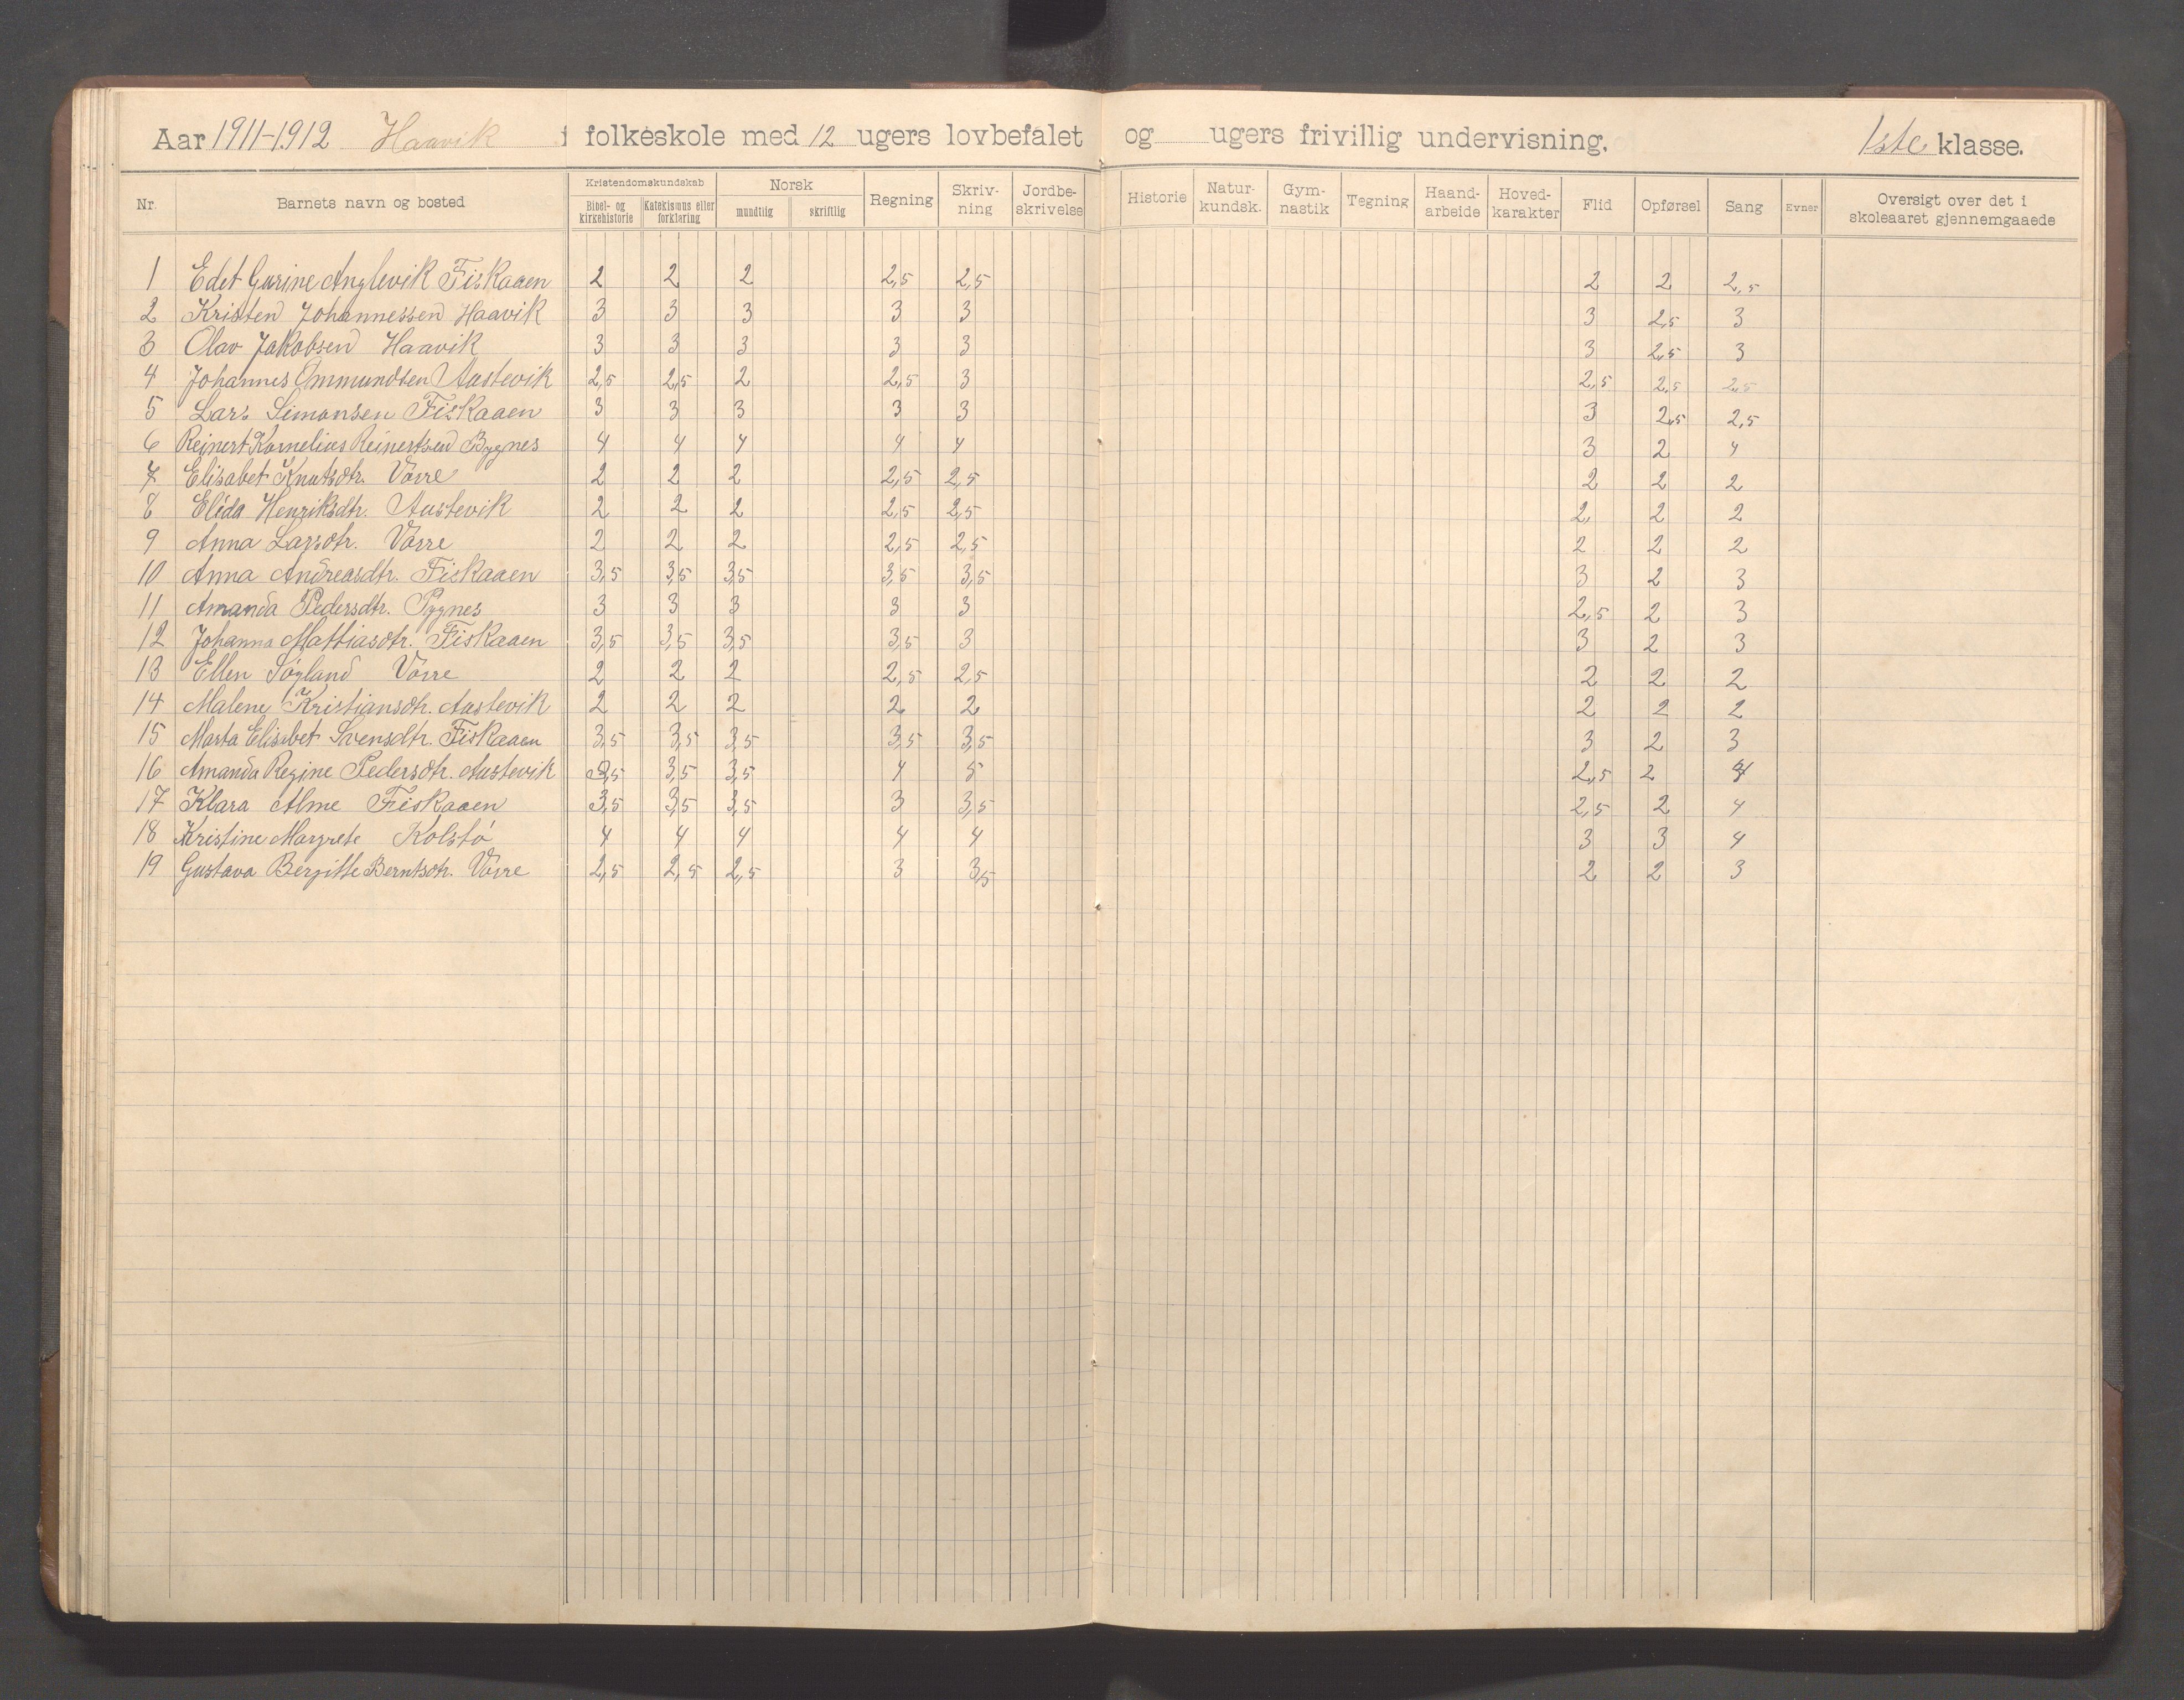 Aar 1911-1912 Haavik i folkeskole med 12 ugers lovbefalet og ugers frivillig undervisning. 1ste klasse.
Nr. Barnets navn og bosted Kristendomskundskab Bibel- og kirkehistorie Katekismus eller forklaring Norsk mundtlig skriftlig Regning Skriv-ning Jordbe-skrivelse Historie Natur-kundsk. Gym-nastik Tegning Haand-arbeide Hoved-karakter Flid Opførsel Sang Evner Oversigt over det i skoleaaret gjennemgaaede
1 Edet Gurine Anglevik Fiskaaen 2 2 2 2,5 2,5 2 2 2,5
2 Kristen Johannessen Haavik 3 3 3 3 3 3 2,5 3
3 Olav Jakobsen Haavik 3 3 3 3 3 3 2,5 3
4 Johannes Ommundsen Austevik 2,5 2,5 2 2,5 3 2,5 2,5 2,5
5 Lars Simonsen Fiskaaen 3 3 3 3 3 3 2,5 2,5
6 Reinert Kornelius Reinertsen Bygnes 4 4 4 4 4 3 2 4
7 Elisabet Knutsdtr. Vorre 2 2 2 2,5 2,5 2 2 2
8 Elida Henriksdtr. Austevik 2 2 2 2,5 2,5 2, 2 2
9 Anna Larsdtr. Vorre 2 2 2 2,5 2,5 2 2 2
10 Anna Andreasdtr. Fiskaaen 3,5 3,5 3,5 3,5 3,5 3 2 3
11 Amanda Pedersdtr. Bygnes 3 3 3 3 3 2,5 2 3
12 Johanna Mattiasdtr. Fiskaaen 3,5 3,5 3,5 3,5 3 3 2 3
13 Ellen Søyland Vorre 2 2 2 2,5 2,5 2 2 2
14 Malene Kristiansdtr. Austevik 2 2 2 2 2 2 2 2
15 Marta Elisabet Svensdtr. Fiskaaen 3,5 3,5 3,5 3,5 3,5 3 2 3
16 Amanda Regine Pedersdtr. Austevik 3,5 3,5 3,5 4 5 2,5 2 4
17 Klara Alme Fiskaaen 3,5 3,5 3,5 3 3,5 2,5 2 4
18 Kristine Margrete Kolstø 4 4 4 4 4 3 3 4
19 Gustava Bergitte Berntsdtr. Vorre 2,5 2,5 2,5 3 3,5 2 2 3